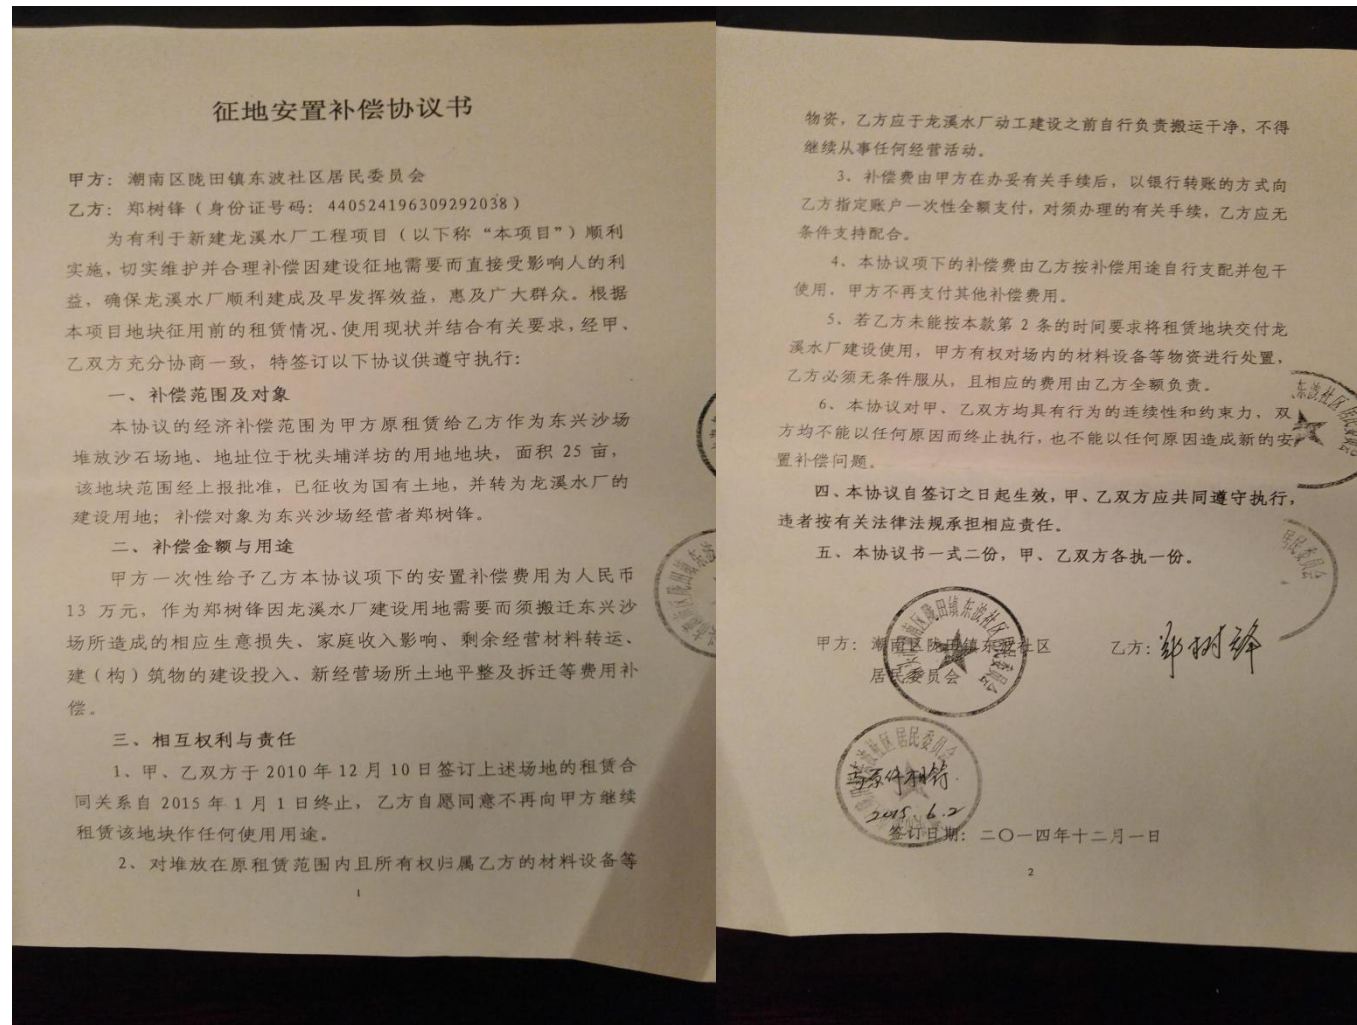 征地安置补偿协议书
甲方：潮南区陇田镇东波社区居民委员会
乙方：郑树锋（身份证号码：440524196309292038）
为有利于新建龙溪水厂工程项目（以下称“本项目”）顺利
实施，切实维护并合理补偿因建设征地需要而直接受影响人的利
益，确保龙溪水厂顺利建成及早发挥效益，惠及广大群众。根据
本项目地块征用前的租赁情况、使用现状并结合有关要求，经甲、
乙双方充分协商一致，特签订以下协议供遵守执行：
一、补偿范围及对象
本协议的经济补偿范围为甲方原租赁给乙方作为东兴沙场
堆放沙石场地、地址位于枕头埔洋坊的用地地块，面积 25 亩，
该地块范围经上报批准，已征收为国有土地，并转为龙溪水厂的
建设用地；补偿对象为东兴沙场经营者郑树锋。
二、补偿金额与用途
甲方一次性给予乙方本协议项下的安置补偿费用为人民币
13 万元，作为郑树锋因龙溪水厂建设用地需要而须搬迁东兴沙
场所造成的相应生意损失、家庭收入影响、剩余经营材料转运、
建（构）筑物的建设投入、新经营场所土地平整及拆迁等费用补
偿。
三、相互权利与责任
1、甲、乙双方于 2010 年 12 月 10 日签订上述场地的租赁合
同关系自 2015 年 1 月 1 日终止，乙方自愿同意不再向甲方继续
租赁该地块作任何使用用途。
2、对堆放在原租赁范围内且所有权归属乙方的材料设备等
1
物资，乙方应于龙溪水厂动工建设之前自行负责搬运干净，不得
继续从事任何经营活动。
3、补偿费由甲方在办妥有关手续后，以银行转账的方式向
乙方指定账户一次性全额支付，对须办理的有关手续，乙方应无
条件支持配合。
4、本协议项下的补偿费由乙方按补偿用途自行支配并包干
使用，甲方不再支付其他补偿费用。
5、若乙方未能按本款第 2 条的时间要求将租赁地块交付龙
溪水厂建设使用，甲方有权对场内的材料设备等物资进行处置，
乙方必须无条件服从，且相应的费用由乙方全额负责。
6、本协议对甲、乙双方均具有行为的连续性和约束力，双
方均不能以任何原因而终止执行，也不能以任何原因造成新的安
置补偿问题。
四、本协议自签订之日起生效，甲、乙双方应共同遵守执行，
违者按有关法律法规承担相应责任。
五、本协议书一式二份，甲、乙双方各执一份。
甲方：潮南区陇田镇东波社区
居民委员会
乙方：郑树锋
与原件相符
2015.6.2
签订日期：二〇一四年十二月一日
2